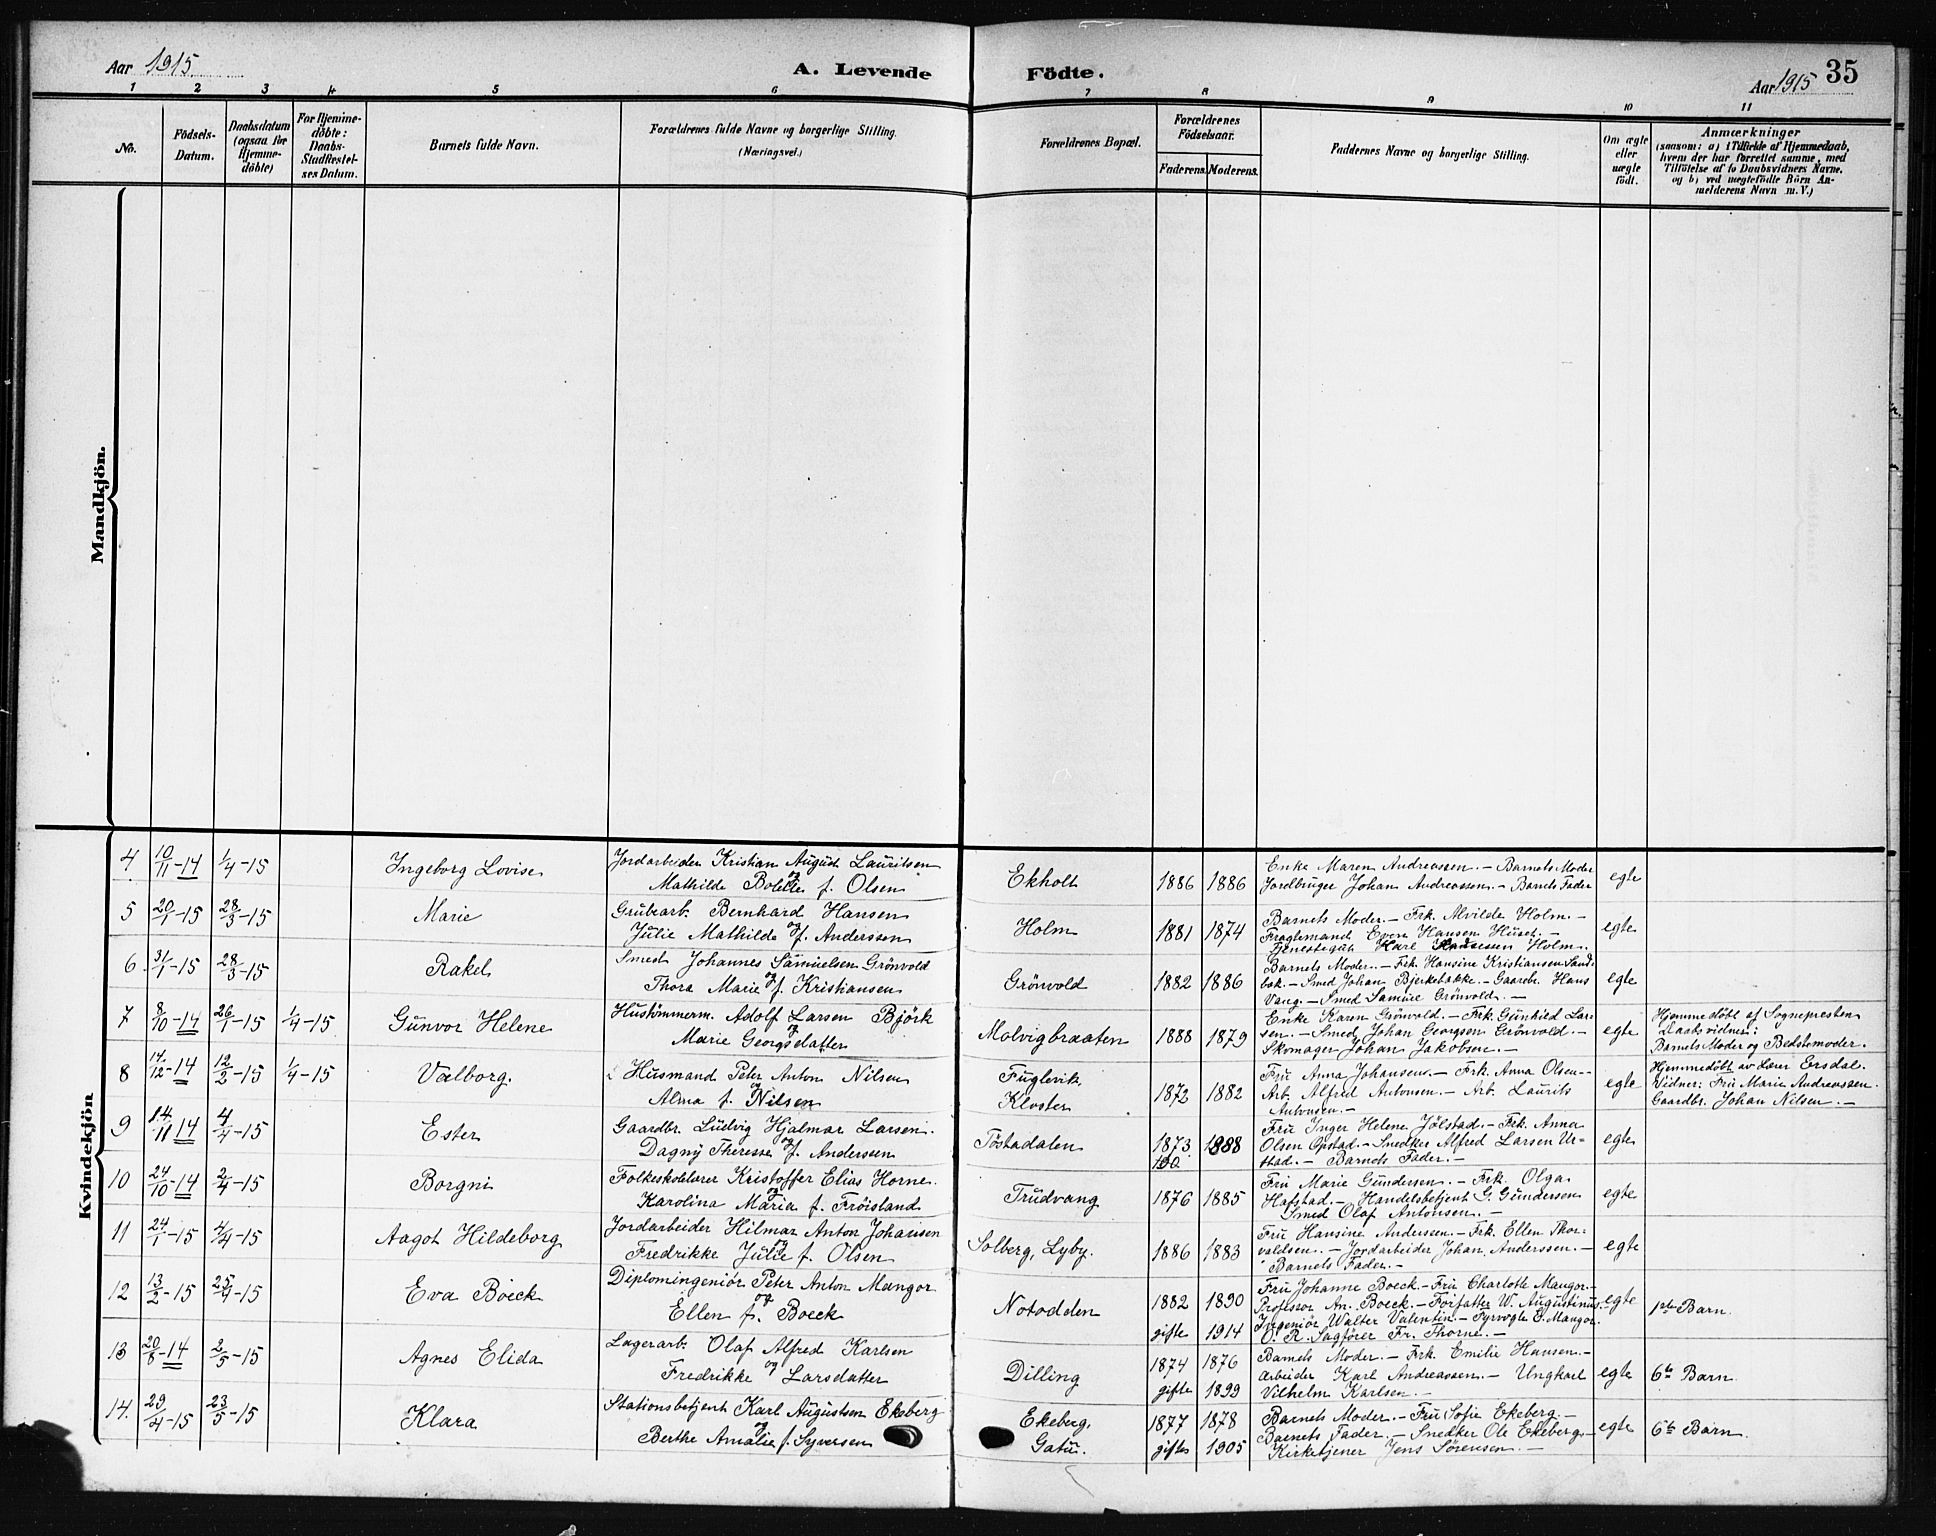 Aar 1915
A. Levende
Födte.
Aar 1915
35
1 2 3 4 5 6 7 8 9 10 11
No.
Födsels-
Datum.
Daabsdatum
(ogsaa for
Hjemme-
döbte)
For Hjemme-
döbte:
Daabs-
Stadfæstel-
ses Datum.
Barnets fulde Navn.
Forældrenes fulde Navne og borgerlige Stilling.
(Næringsvei.)
Forældrenes Bopæl.
Forældrenes
Födselsaar.
Faderens. Moderens.
Faddernes Navne og borgerlige Stilling.
Om ægte
eller
uægte
födt.
Anmærkninger
(saasom: a) i Tilfælde af Hjemmedaab,
hvem der har forrettet samme, med
Tilföielse af to Daabsvidners Navne.
og b) ved uægtefödte Börn An-
melderens Navn m. V.)
Mandkjön.
Kvindekjön
4 10/11-14 1/4-15 Ingeborg Lovise
Jordarbeider Kristian August Lauritsen
og
Mathilde Bolette f. Olsen
Ekholt 1886 1886
Enke Maren Andreassen.- Barnets Moder
Jordbruger Johan Andreassen.- Barnets Fader
egte
5 20/1-15 28/3-15 Marie
Grubearb. Bernhard Hansen
og
Julie Mathilde f. Anderssen
Holm 1881 1874
Barnets Moder.- Frk. Alvilde Holm.-
Fragtemand Even Hansen Huset.-
Tjenestegut Karl Hansessen Holm.
egte
6 31/1-15 28/3-15 Rakel
Smed Johannes Samuelsen Grönvold
og
Thora Marie f. Kristiansen
Grönvold 1882 1886
Barnets Moder.- Frk. Hansine Kristiansen Sand-
bak.- Smed Johan Bjerkebakke.- Gaardbr. Hans
Vang.- Smed Samuel Grönvold.-
egte
7 8/10-14 26/1-15 1/4-15 Gunvor Helene
Hustömmerm. Adolf Larsen Björk
og
Marie Georgsdatter
Molvigbraaten 1888 1879
Enke Karen Grönvold.- Frk. Gunhild Lar-
sen.- Smed Johan Georgsen Grönvold.-
Skomager Johan Jakobsen.-
egte
Hjemmedöbt af Sognepresten
Daabsvidner:
Barnets Moder og Bedstemoder.
8 14/12-14 12/2-15 1/4-15 Valborg.
Husmand Peter Anton Nilsen
og
Alma f. Nilsen
Fuglevik,
Kloster 1872 1882
Fru Anna Johansen.- Frk. Anna Olsen.-
Arb. Alfred Antonsen.- Arb. Laurits
Antonsen.-
egte
Hjemmedöbt av Lær Ersdal.
Vidner: Fru Marie Andreassen.
Gaardbr. Johan Nilsen.-
9 14/11-14 4/4-15 Ester
Gaardbr. Ludvig Hjalmar Larsen.
og
Dagny Therese f. Anderssen
Töstadalen 1873 1888
Fru Inger Helene Jölstad.- Frk. Anna
Olsen Opstad.- Snedker Alfred Larsen Ur-
stad.- Barnets Fader.-
egte
10 24/10-14 2/4-15 Borgni
Folkeskolelærer Kristoffer Elias Horne.
og
Karolina Maria f. Fröisland
Trudvang 1876 1885
Fru Marie Gundersen.- Frk. Olga
Hafstad.- Handelsbetjent G. Gundersen
Smed Olaf Antonsen.-
egte
11 24/1-15 4/4-15 Aagot Hildeborg
Jordarbeider Hilmar Anton Johansen
og
Fredrikke Julie f. Olsen
Solberg, Lyby. 1886 1883
Fru Hansine Andersen.- Frk. Ellen Thor-
valdsen.- Jordarbeider Johan Anderssen.-
Barnets Fader.-
egte
12 13/2-15 25/4-15 Eva Boeck
Diplomingeniör Peter Anton Mangor
og
Ellen f. Boeck
Notodden 1882 1890
gifte 1914
Fru Johanne Boeck.- Fru Charlotte Mangor.-
Professor An. Boeck.- Forfatter W. Augustinus.-
Ingeniör Walter Valentin.- Fyrvogte E. Mangor.
O. R. Sagförer Fr. Thorne.-
egte
1ste Barn.
13 20/8-14 2/5-15 Agnes Elida
Lagerarb. Olaf Alfred Karlsen
og
Fredrikke Larsdatter
Dilling 1874 1876
gifte 1899
Barnets Moder.- Frk. Emilie Hansen.-
Arbeider Karl Andreassen.- Ungkarl
Vilhelm Karlsen.-
egte
6te Barn.
14. 29/4-15 23/5-15 Klara
Stationsbetjent Karl Augustsen Ekeberg
og
Berthe Amalie f. Syversen
Ekeberg,
Gatu. 1877 1878
giftes 1905
Barnets Moder.- Fru Sofie Ekeberg.-
Barnets Fader.- Snedker Ole Ekeberg.-
Kirketjener Jens Sörensen.-
egte
6te Barn.